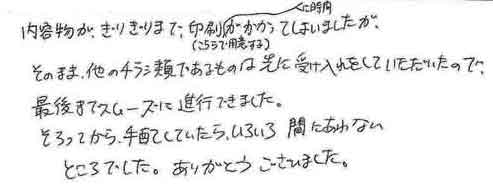 に時間
内容物が、ぎりぎりまで、印刷がかかってしまいましたが、
(こちらで用意する)
そのまま、他のチラシ類であるものは先に受け入れをしていただいたので、
最後までスムーズに進行できました。
そろってから、手配していたら、いろいろ間にあわない
ところでした。ありがとうございました。